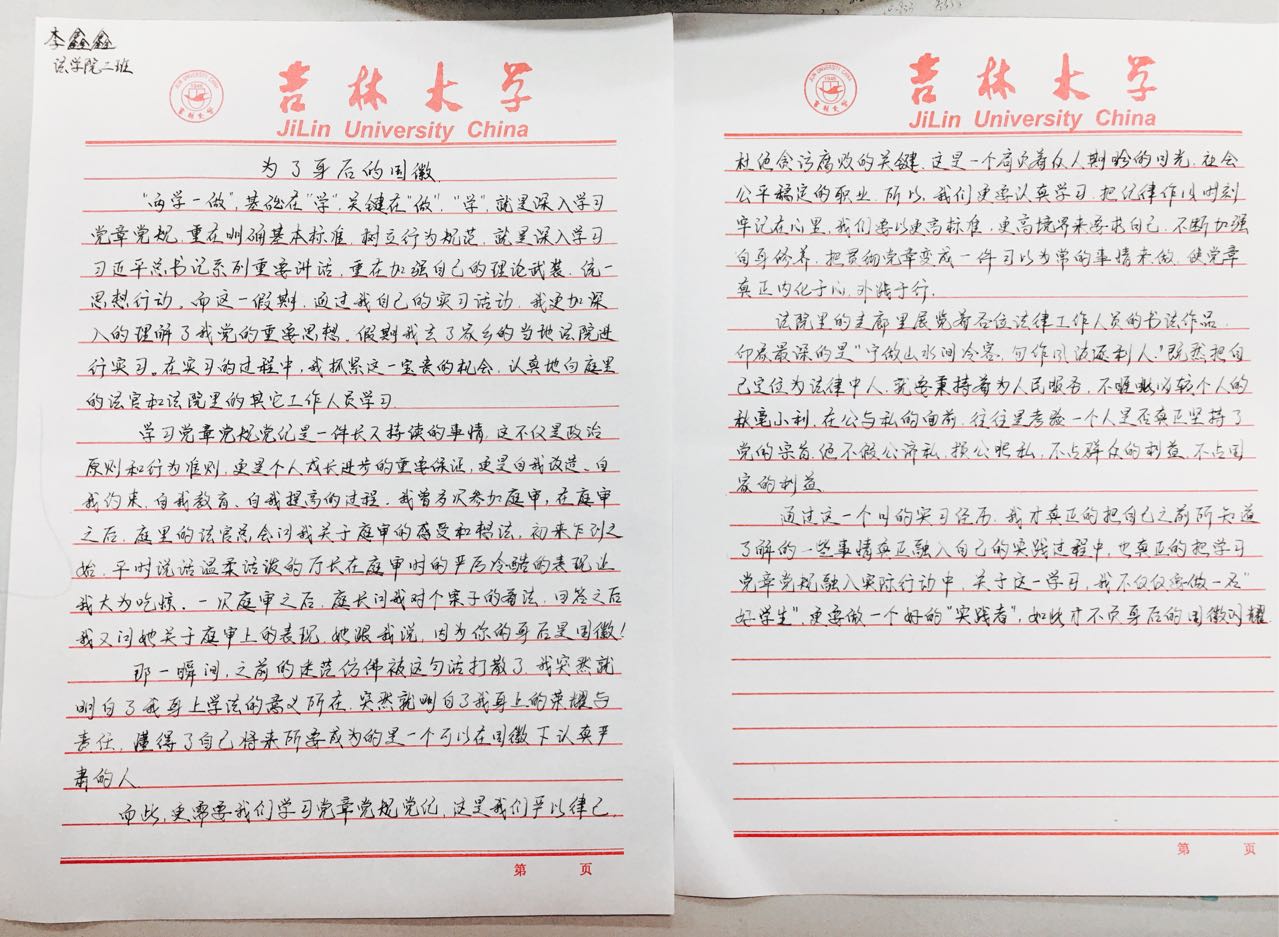 李鑫鑫
法学院二班
吉林大学
JiLin University China
为了身后的国徽
"两学一做",基础在"学",关键在"做"."学",就是深入学习
党章党规,重在明确基本标准,树立行为规范,就是深入学习
习近平总书记系列重要讲话,重在加强自己的理论武装,统一
思想行动。而这一假期,通过我自己的实习活动,我更加深
入的理解了我党的重要思想。假期我去了家乡的当地法院进
行实习。在实习的过程中,我抓紧这一宝贵的机会,认真地向庭里
的法官和法院里的其它工作人员学习.
学习党章党规党纪是一件长久持续的事情,这不仅是政治
原则和行为准则,更是个人成长进步的重要保证,更是自我改造、自
我约束、自我教育、自我提高的过程。我曾多次参加庭审,在庭审
之后,庭里的法官总会问我关于庭审的感受和想法,初来乍到之
始,平时说话温柔活泼的厅长在庭审时的严厉冷酷的表现让
我大为吃惊。一次庭审之后,庭长问我对个案子的看法,回答之后
我又问她关于庭审上的表现,她跟我说,因为你的身后是国徽!
那一瞬间,之前的迷茫仿佛被这句话打散了.我突然就
明白了我身上学法的意义所在,突然就明白了我身上的荣耀与
责任,懂得了自己将来所要成为的是一个可以在国徽下认真严
肃的人.
而此,更需要我们学习党章党规党纪,这是我们严以律己,
第 页
JILIN UNIVERSITY CHINA
1946
吉林大学
吉林大学
JiLin University China
杜绝贪污腐败的关键.这是一个肩负着众人期盼的目光,社会
公平稳定的职业.所以,我们更要认真学习,把纪律作风时刻
牢记在心里.我们要以更高标准,更高境界来要求自己,不断加强
自身修养,把贯彻党章变成一件习以为常的事情来做,使党章
真正内化于心,外践于行.
法院里的走廊里展览着各位法律工作人员的书法作品,
印象最深的是"宁做山水间冷客,勿作 利人."既然把自
己定位为法律中人,就要秉持着为人民服务,不 较个人的
秋毫小利.在公与私的面前,往往是考验一个人是否真正坚持了
党的宗旨,绝不假公济私,损公肥私,不占群众的利益,不占国
家的利益.
通过这一个月的实习经历,我才真正的把自己之前所知道
了解的一些事情真正融入自己的实践过程中,也真正的把学习
党章党规融入实际行动中.关于这一学习,我不仅仅要做一名"
好学生",更要做一个好的"实践者",如此才不负身后的国徽闪耀.
第 页
JILIN UNIVERSITY CHINA
1946
吉林大学